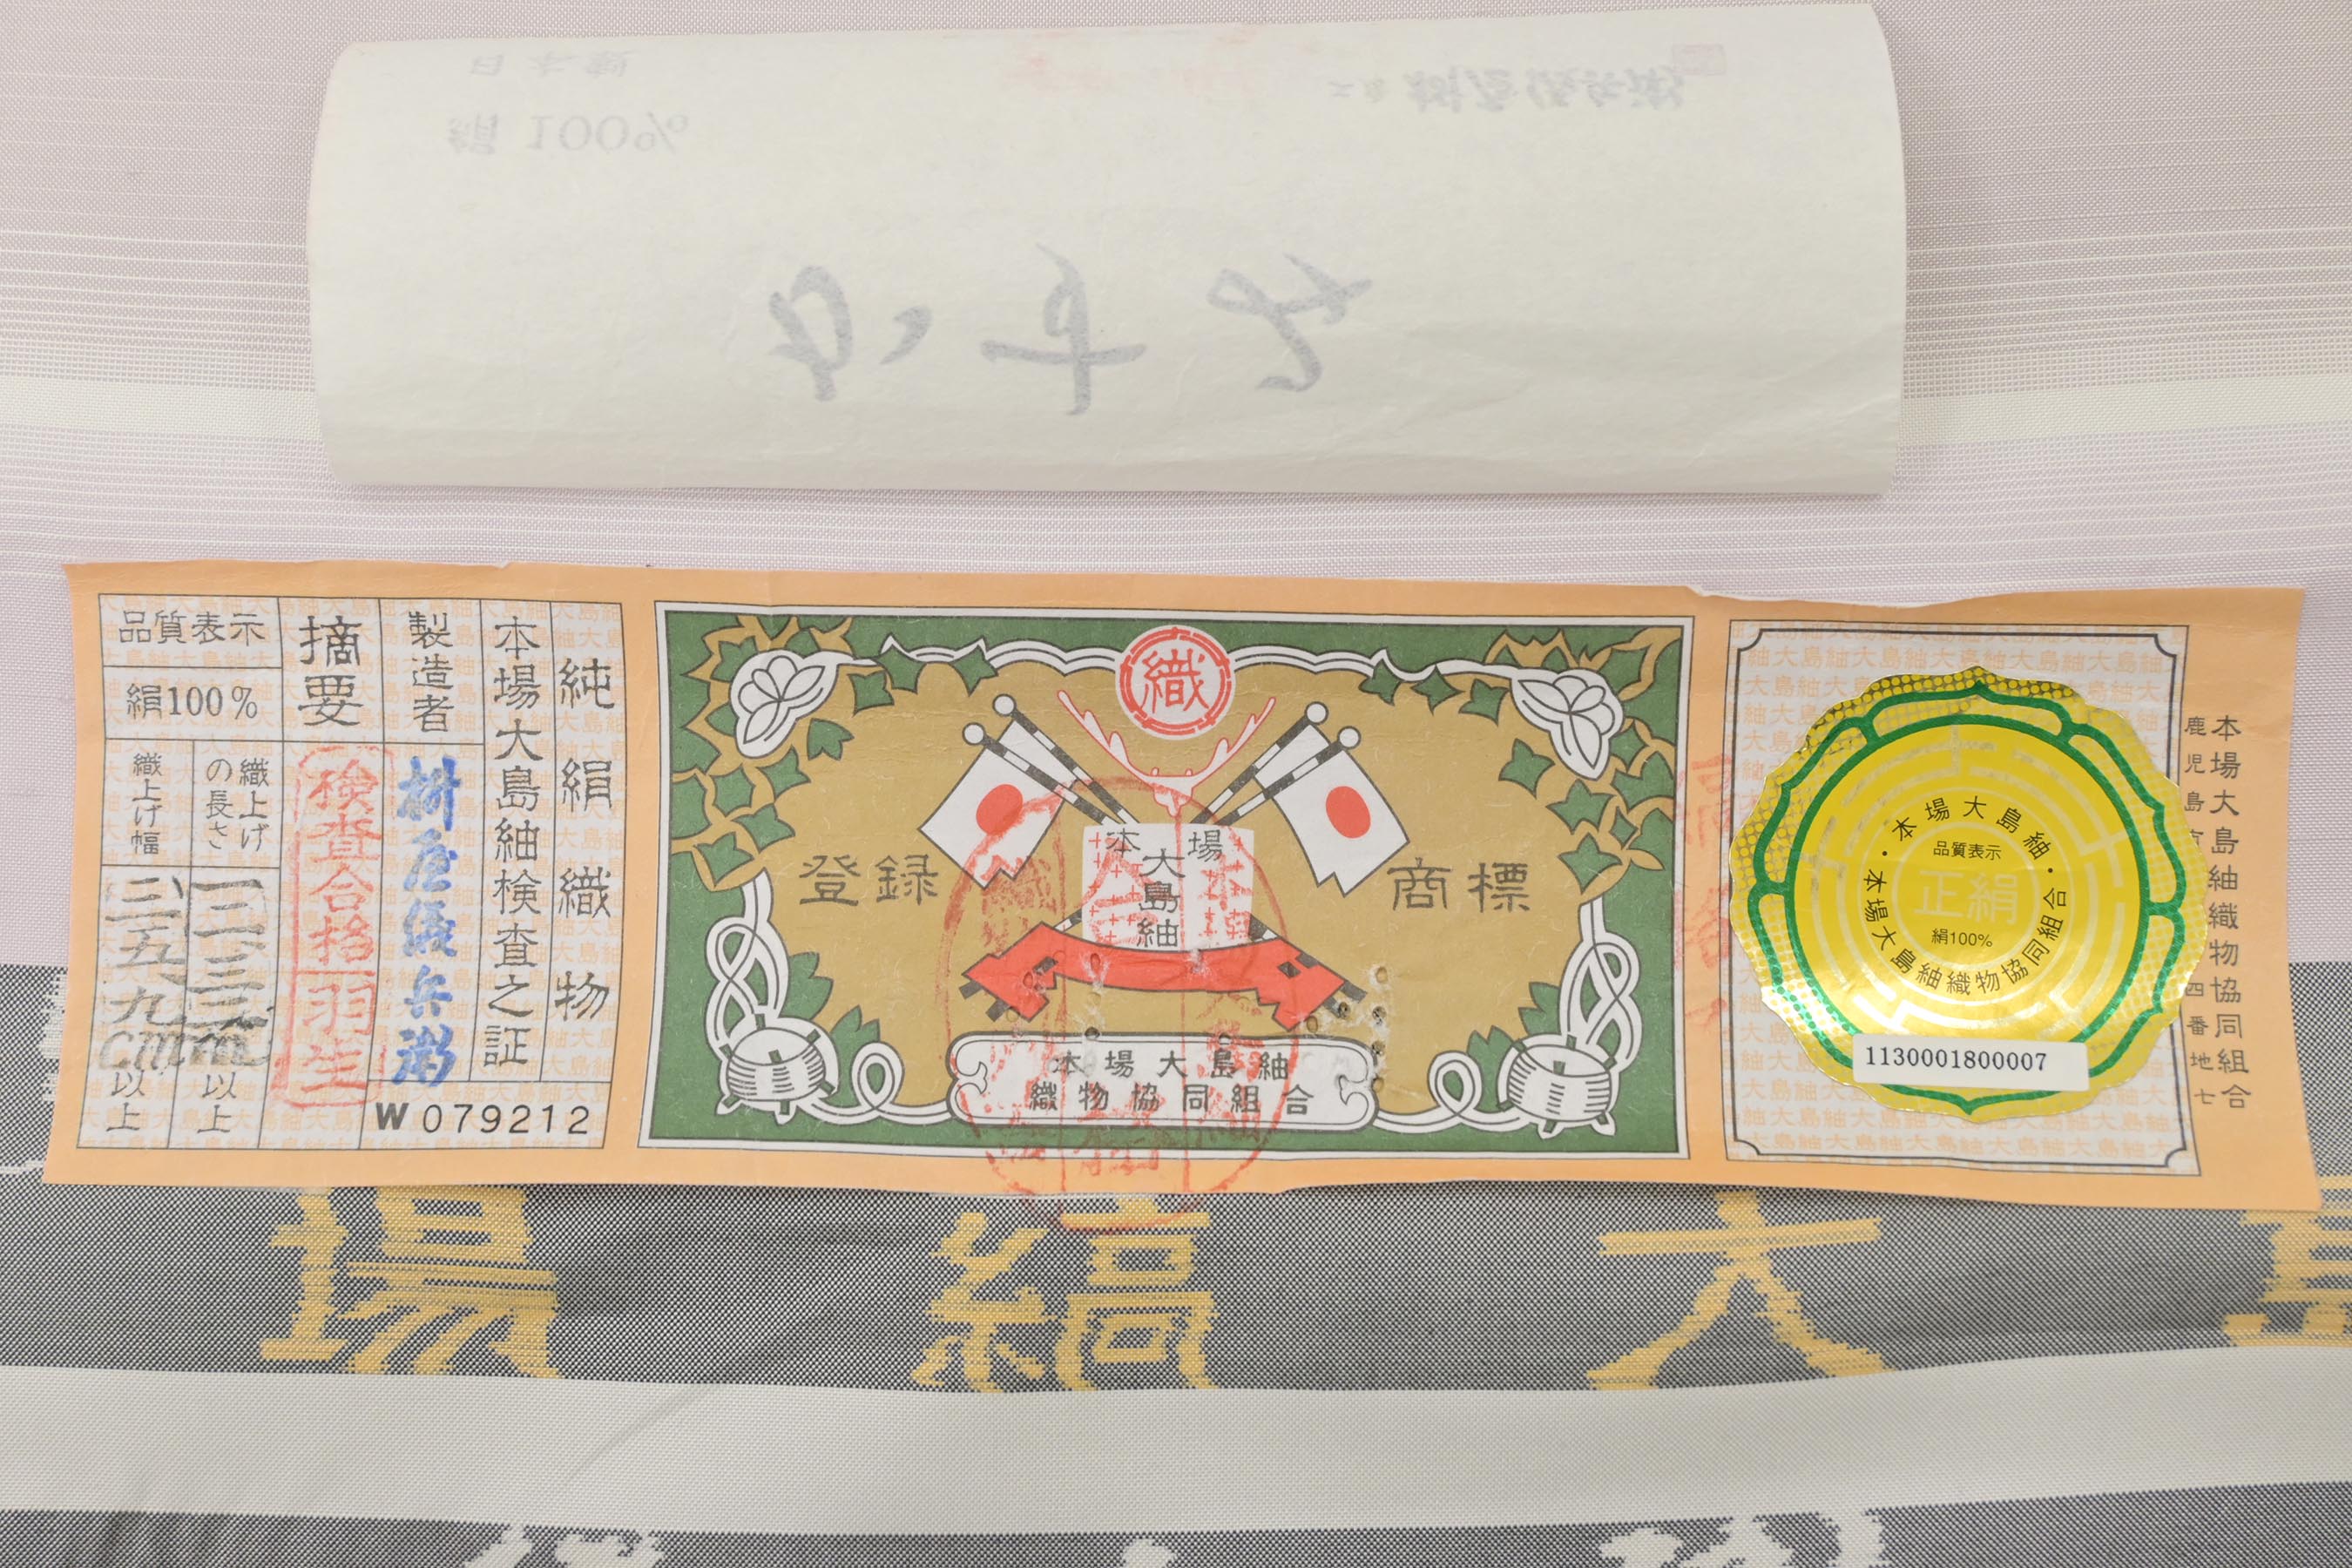 日本製
絹 100%
かすみ
純絹織物
本場大島紬検査之証
製造者
桝屋儀兵衛
摘要
検査合格
羽生
品質表示
絹100%
織上げの長さ
以上
織上げ幅
三五、九cm以上
W079212
織
登録
商標
本場
大島紬
本場大島紬
織物協同組合
・本場大島紬・
品質表示
正絹
絹100%
本場大島紬織物協同組合
1130001800007
本場大島紬織物協同組合
鹿児島市
四番地七
場縞大島